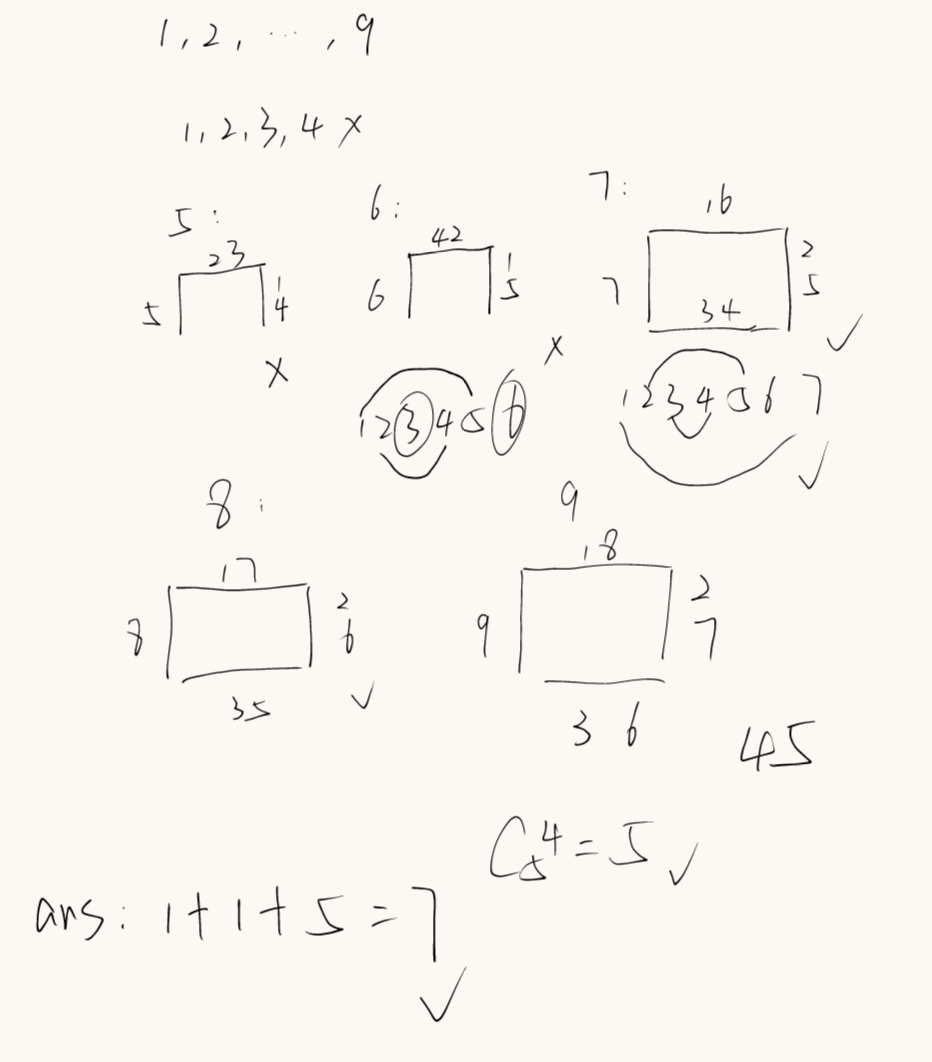 1, 2, ···, 9
1, 2, 3, 4 ×
5:
23
5
1
4
×
6:
42
6
1
5
×
1 2 3 4 5 6
7:
16
7
2
5
34
✓
1 2 3 4 5 6 7
✓
8:
17
8
2
6
35
✓
9
18
9
2
7
3 6
45
C₅⁴ = 5 ✓
ans: 1 + 1 + 5 = 7
✓